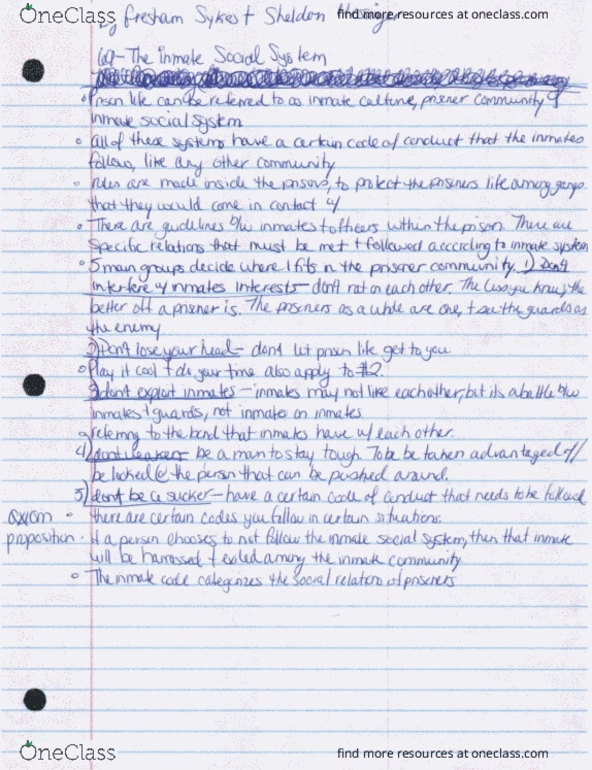 OneClass find more resources at oneclass.com
by Gresham Sykes + Sheldon
The Inmate Social System
Prison life can be referred to as inmate culture, prisoner community &
inmate social system
all of these systems have a certain code of conduct that the inmates
follow, like any other community
rules are made inside the prisons, to protect the prisoners life among gangs
that they would come in contact w/
There are guidelines b/w inmates + officers within the prison. There are
Specific relations that must be met + followed according to inmate system
5 main groups decide where 1 fits in the prisoner community. 1) Don't
interfere w/ inmates interests - don't rat on each other. The less you know, the
better off a prisoner is. The prisoners as a whole are one, + see the guards as
the enemy
2) Don't lose your head - don't let prison life get to you
Play it cool + do your time also apply to #2.
3) don't exploit inmates - inmates may not like each other, but its a battle b/w
inmates + guards, not inmates on inmates
referring to the bond that inmates have w/ each other.
4) don't weaken - be a man to stay tough. To be taken advantaged of //
be looked @ the person that can be pushed around.
5) don't be a sucker - have a certain code of conduct that needs to be followed
axiom there are certain codes you follow in certain situations.
proposition if a person chooses to not follow the inmate social system, then that inmate
will be harrassed + exiled among the inmate community
The inmate code categorizes the social relations of prisoners
OneClass find more resources at oneclass.com